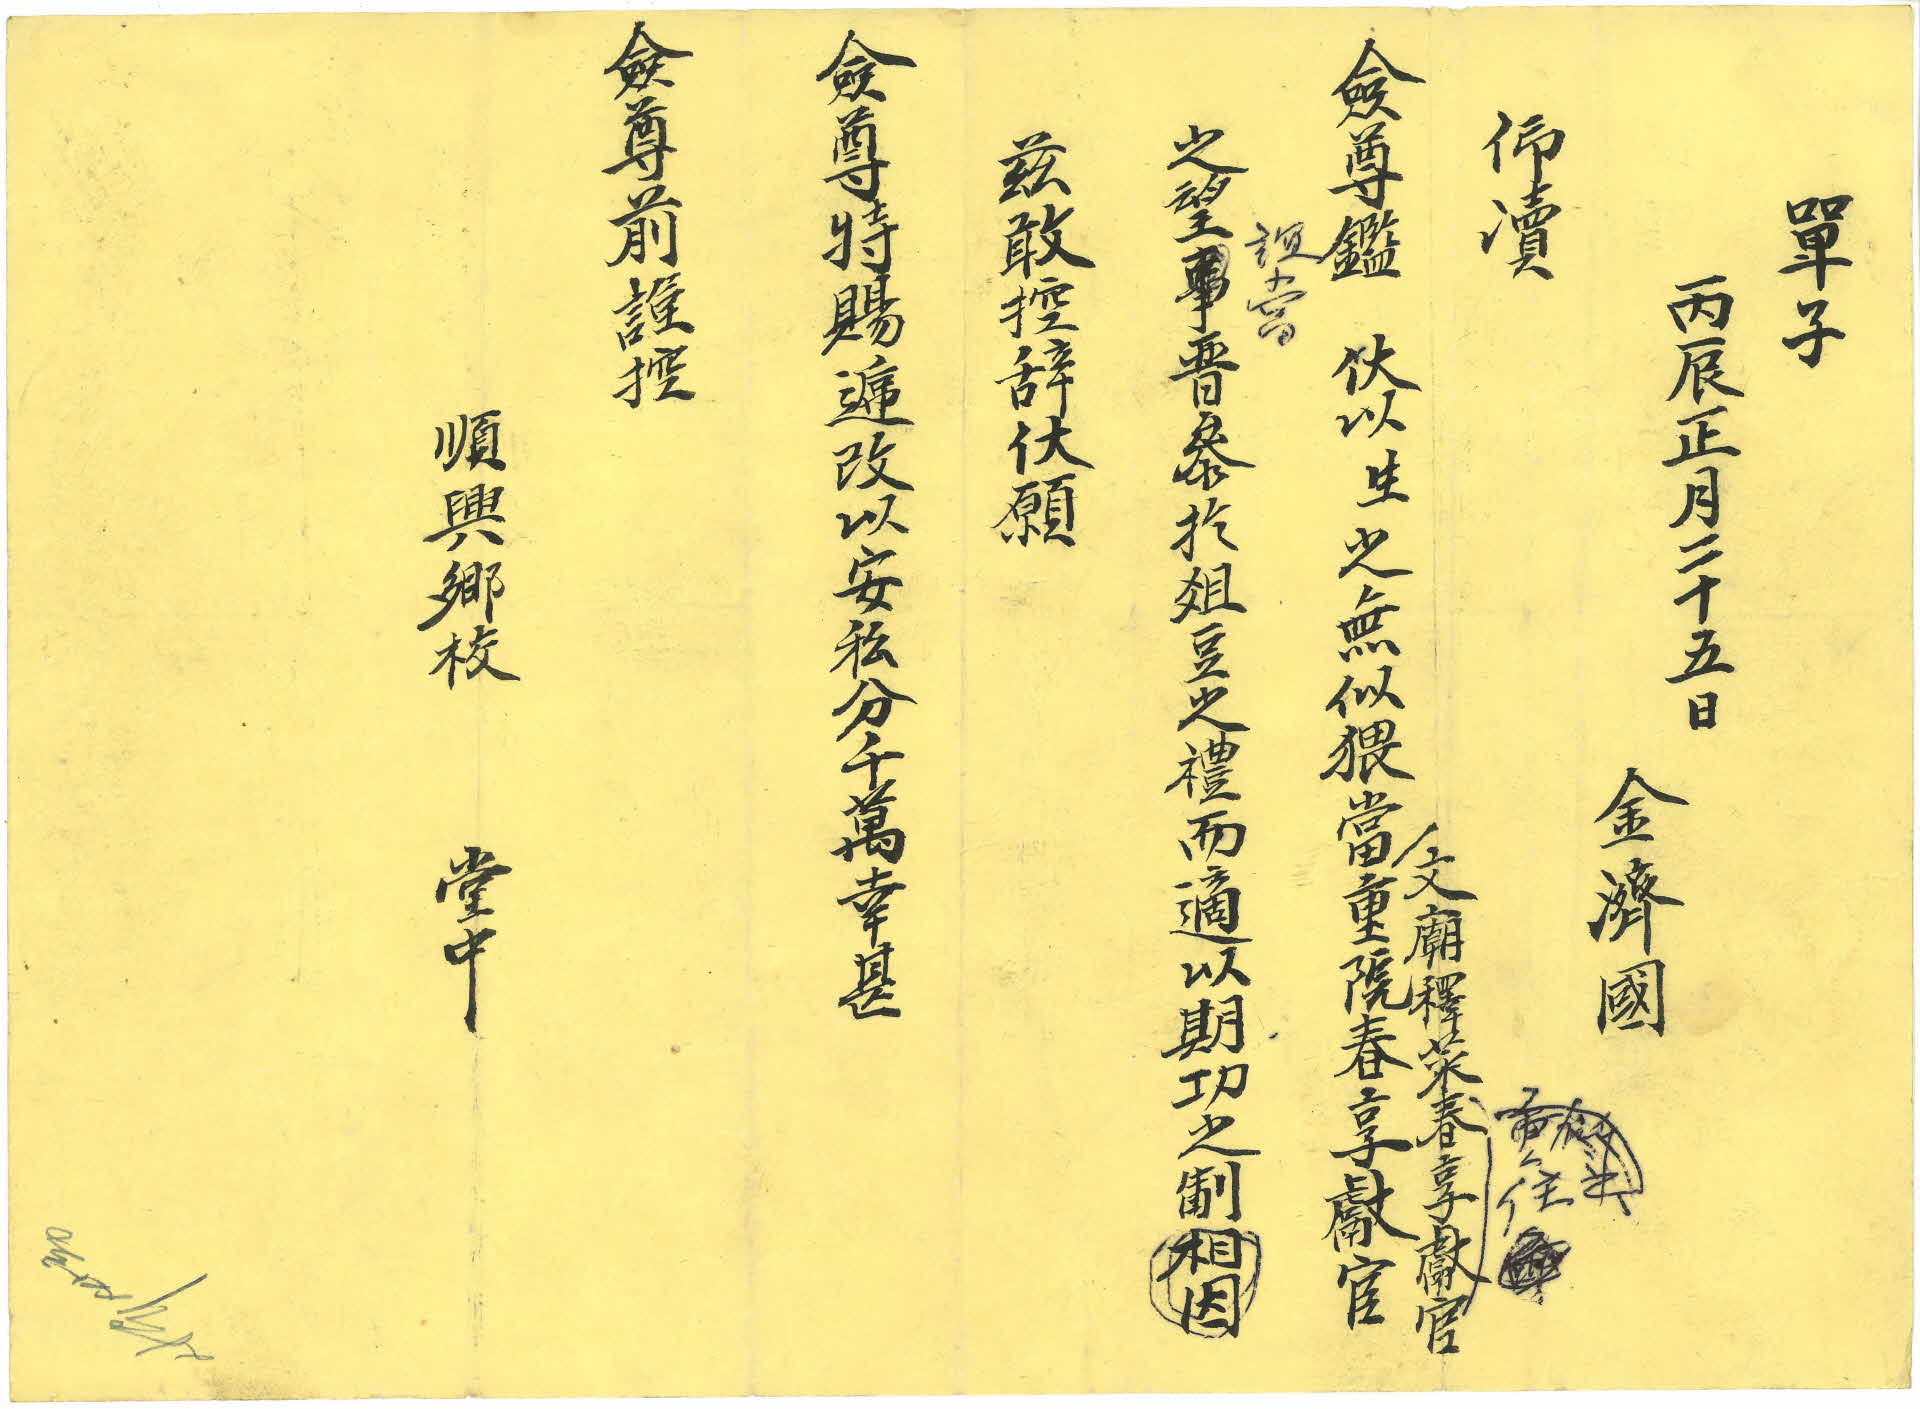 單子
丙辰正月二十五日
金濟國
仰瀆
僉尊鑑 伏以生之無似猥當重院春享獻官
文廟釋菜春享獻官
責任
誼當
之望事晋參於俎豆之禮而適以期功之制相因
玆敢控辞伏願
僉尊特賜遞改以安私分千萬幸甚
僉尊前謹控
順興鄉校 堂中